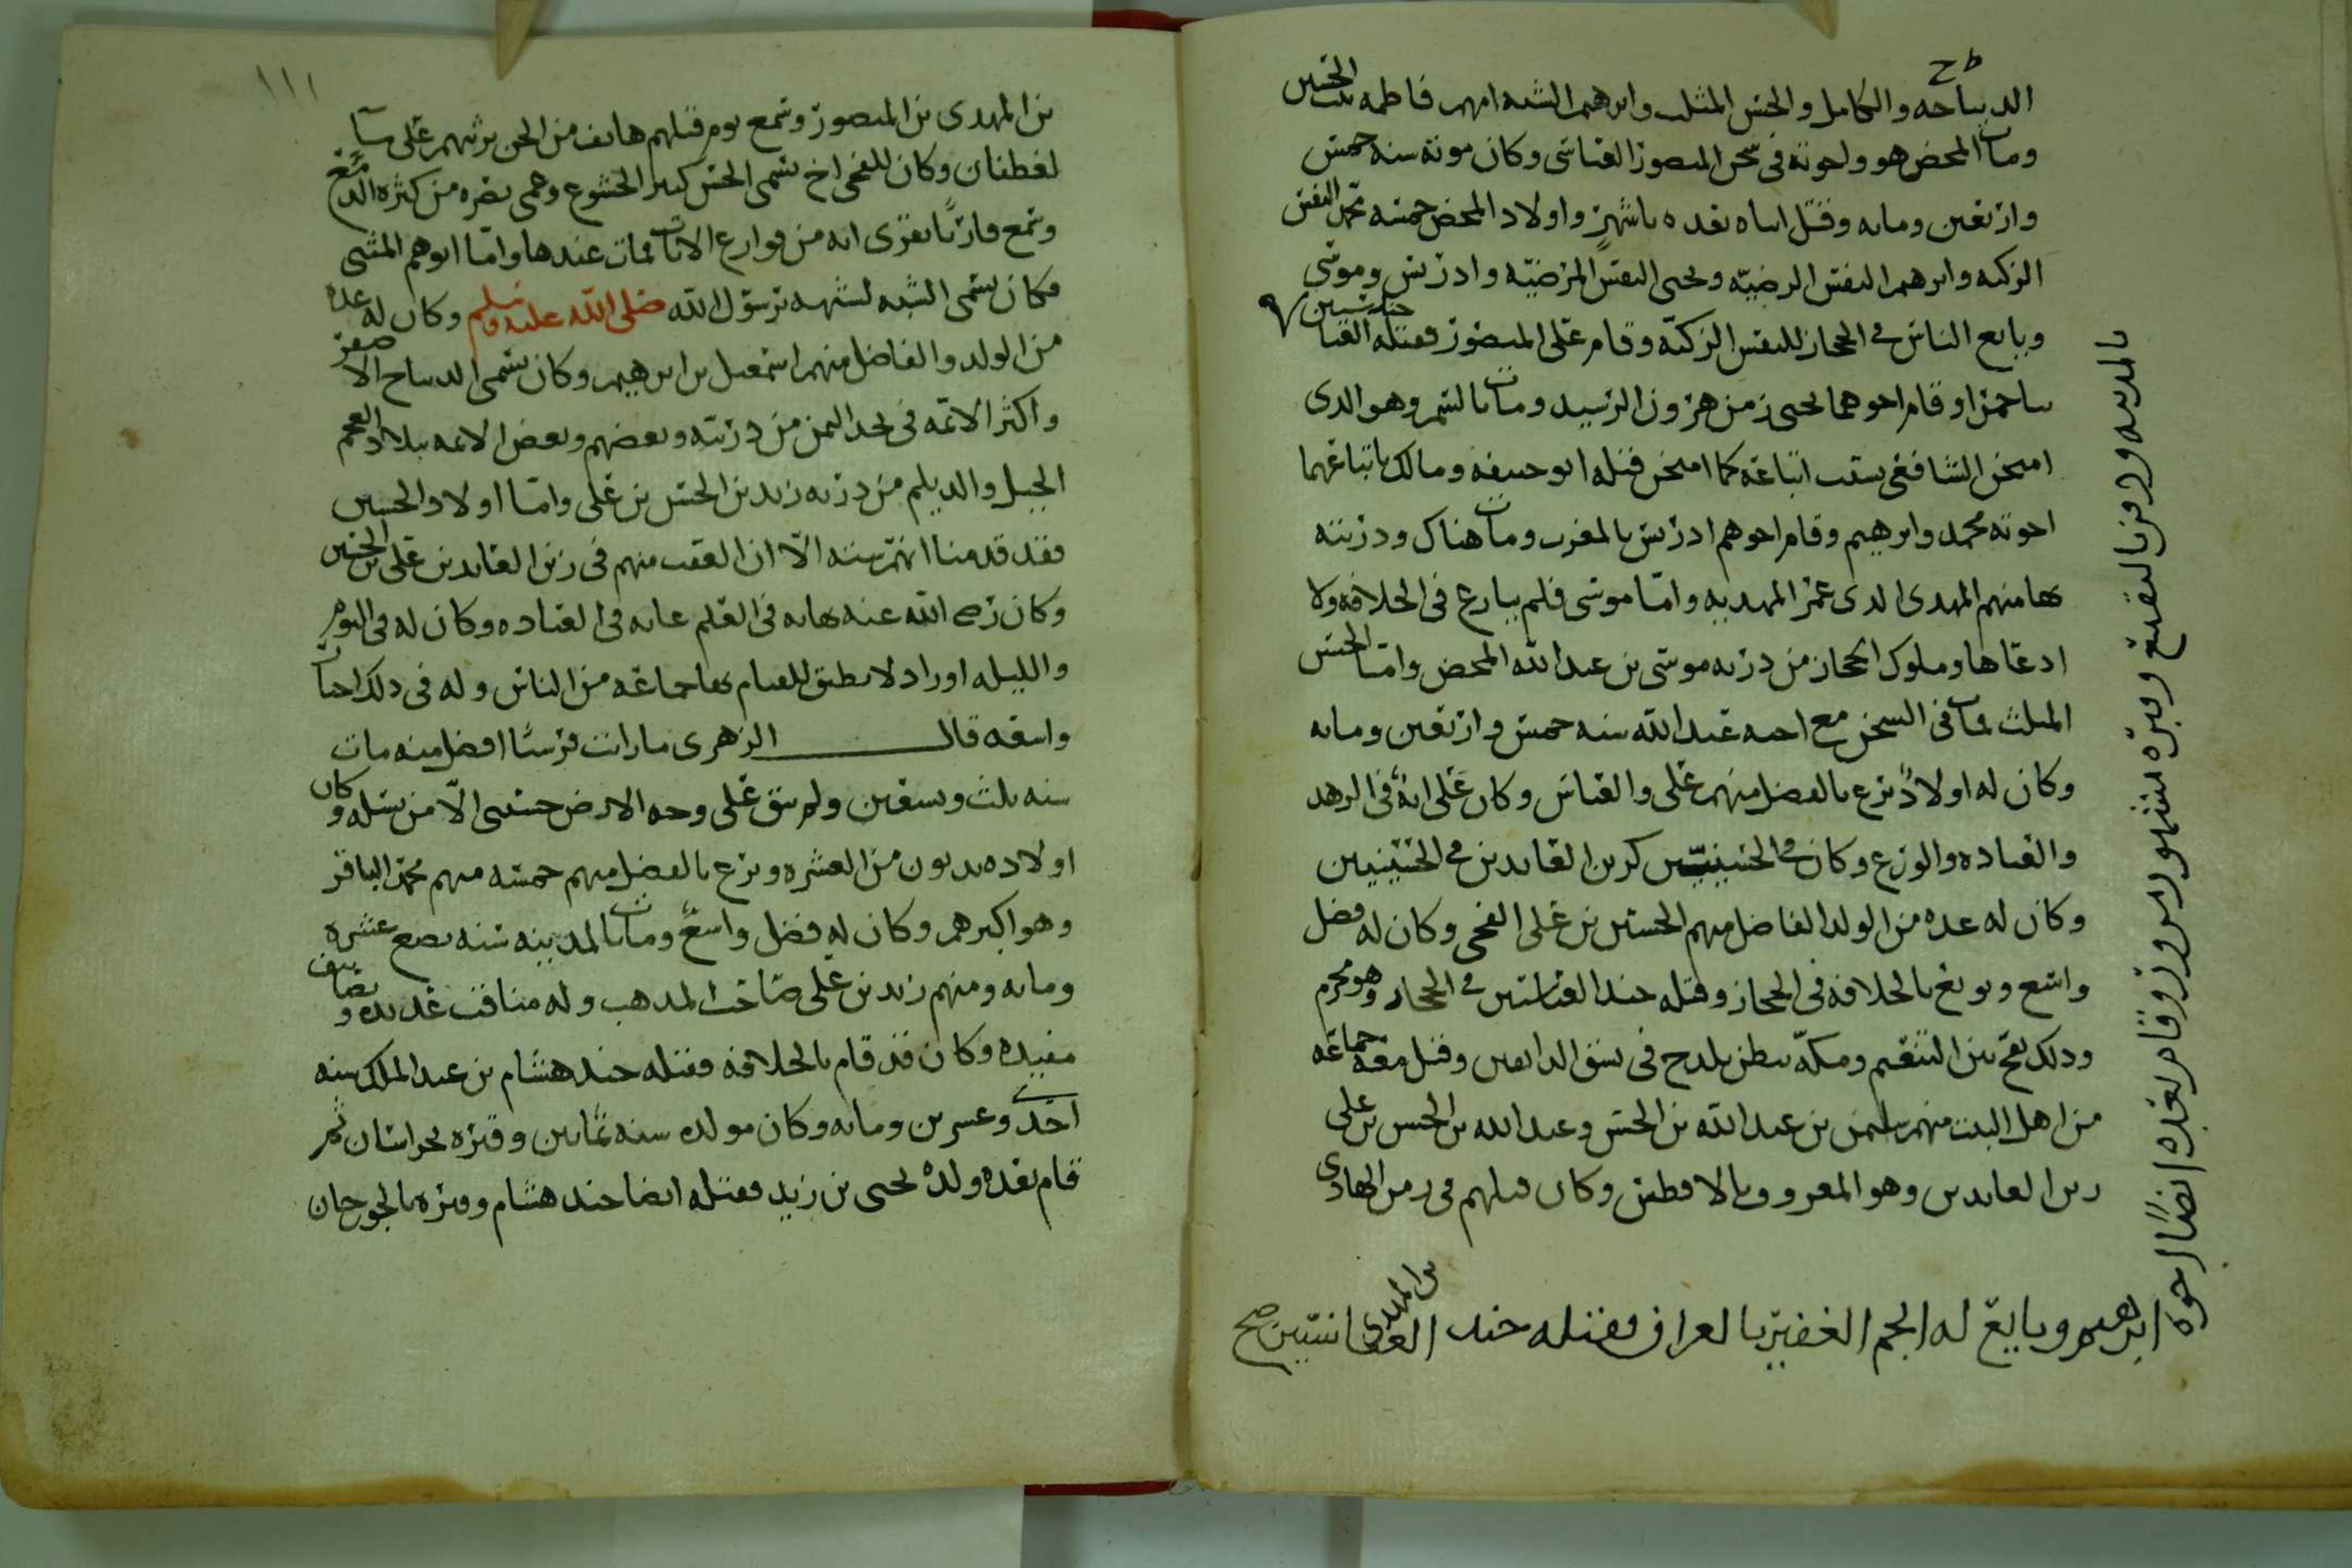 الديباجه والكامل والحسن المثلث وابرهيم الشبه امهم فاطمه بنت الحسين
ومات المحض هو واخوته في سجن المنصور العباسي وكان موته سنه خمس
واربعين ومايه وقتل ابناه بعده باشهر واولاد المحض خمسه محمد النفس
الزكيه وابرهيم النفس الرضيه ويحيى النفس المرضيه وادريس وموسى
وبايع الناس في الحجاز للنفس الزكيه وقام على المنصور فقتله العبا جند سيين
باحمرا وقام اخوهما يحيى زمن هرون الرشيد ومات بالسم وهو الذي
امتحن الشافعي بسبب اتباعه كما امتحن قبله ابو حنيفه ومالك باتباعهما
اخوته محمد وابرهيم وقام اخوهم ادريس بالمغرب ومات هناك وذريته
بها منهم المهدي الذي عمر المهديه واما موسى فلم يبارع في الخلافه ولا
ادعاها وملوك الحجاز من ذريه موسى بن عبدالله المحض واما الحسن
المثلث فمات في السجن مع اخيه عبدالله سنه خمس واربعين ومايه
وكان له اولاد برع بالفضل منهم علي والعباس وكان علي ايه في الزهد
والعباده والورع وكان في الحسنيين كزين العابدين في الحسينيين
وكان له عده من الولد الفاضل منهم الحسين بن علي الفخي وكان له فضل
واسع وبويع بالخلافه في الحجاز وقتله جند العباسيين في الحجاز وهو محرم
وذلك بفخ بين التنعيم ومكه ببطن بلدح في الدابعين وقتل معه جماعه
من اهل البيت منهم سليمن بن عبدالله بن الحسن وعبدالله بن الحسن بن علي
زين العابدين وهو المعروف بالافطس وكان قتلهم في زمن الهادي
بالمدينه ودفن بالبقيع وقبره مشهور مزور وقام بعده ايضا اخوه
ابرهيم وبايع له الجم الغفير بالعراق فقتله جند العباسيين صح
١١١
بن المهدي بن المنصور وسمع يوم قتلهم هاتف من الجن يرثيهم على سا
لغطفان وكان للفخي اخ يسمى الحسن كثير الخشوع وعمي بصره من كثره الدمع
وسمع قاريا يقرى ايه من قوارع الايات فمات عندها واما ابرهيم المثنى
فكان يسمى الشبه لشبهه برسول الله صلى الله عليه وسلم وكان له عده
من الولد والفاضل منهم اسمعيل بن ابرهيم وكان يسمى الديباج الاصغر
واكثر الائمه في نجد اليمن من ذريته وبعضهم وبعض الائمه ببلاد العجم
الجيل والديلم من ذريه زيد بن الحسن بن علي واما اولاد الحسين
فقد قدمنا انهم سته الا ان العقب منهم في زين العابدين علي بن الحسين
وكان رضي الله عنه نهايه في العلم غايه في العباده وكان له في اليوم
والليله اوراد لا يطيق للقيام بها جماعه من الناس وله في ذلك اخبار
واسعه قال الزهري ما رايت قرشيا افضل منه مات
سنه ثلث وتسعين ولم يبق على وجه الارض حسيني الا من نسله وكان
اولاده يزيدون من العشره وبرع بالفضل منهم خمسه منهم محمد الباقر
وهو اكبرهم وكان له فضل واسع ومات بالمدينه سنه بضع عشره
ومايه ومنهم زيد بن علي صاحب المذهب وله مناقب عديده وتصانيف
مفيده وكان قد قام بالخلافه فقتله جند هشام بن عبد الملك سنه
احدى وعشرين ومايه وكان مولده سنه ثمانين وقبره بخراسان ثم
قام بعده ولده يحيى بن زيد فقتله ايضا جند هشام وقبره بالجوزجان